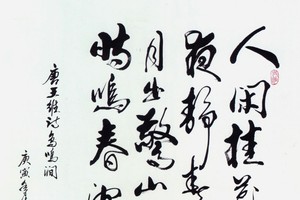 人闲桂花
夜静春
月出驚山
时鸣春
唐王维诗鸟鸣涧
庚寅